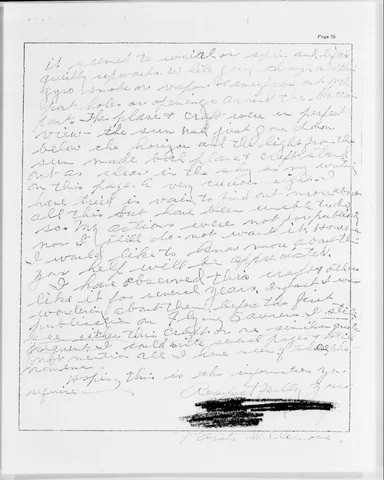 Page 10
it seemed to whirl or spin and lift
quietly upwards. While going through all this
gyro smoke or vapor came from out of the
port holes or openings around the bottom
part. The plane & craft were in perfect
view - the sun had just gone down
below the horizon and the light from the
sun made both plane & craft stand
out as clear in the sky as my writing
on this page. A very curious sight. I
have tried in vain to find out more about
all this but have been unable to do
so. My actions were not for publicity
now I still do not want it. However
I would like to know more about this
your help will be appreciated.
I have observed this craft & others
like it for several years. Infact I was
wondering about them before the first
publication on Flying Saucers. I still
see either this craft or one similar quite
frequent. I could write several pages & still
not mention all I have seen of the pheno
nomena.
Hoping this is the information you
require
Really yours
Illinois.